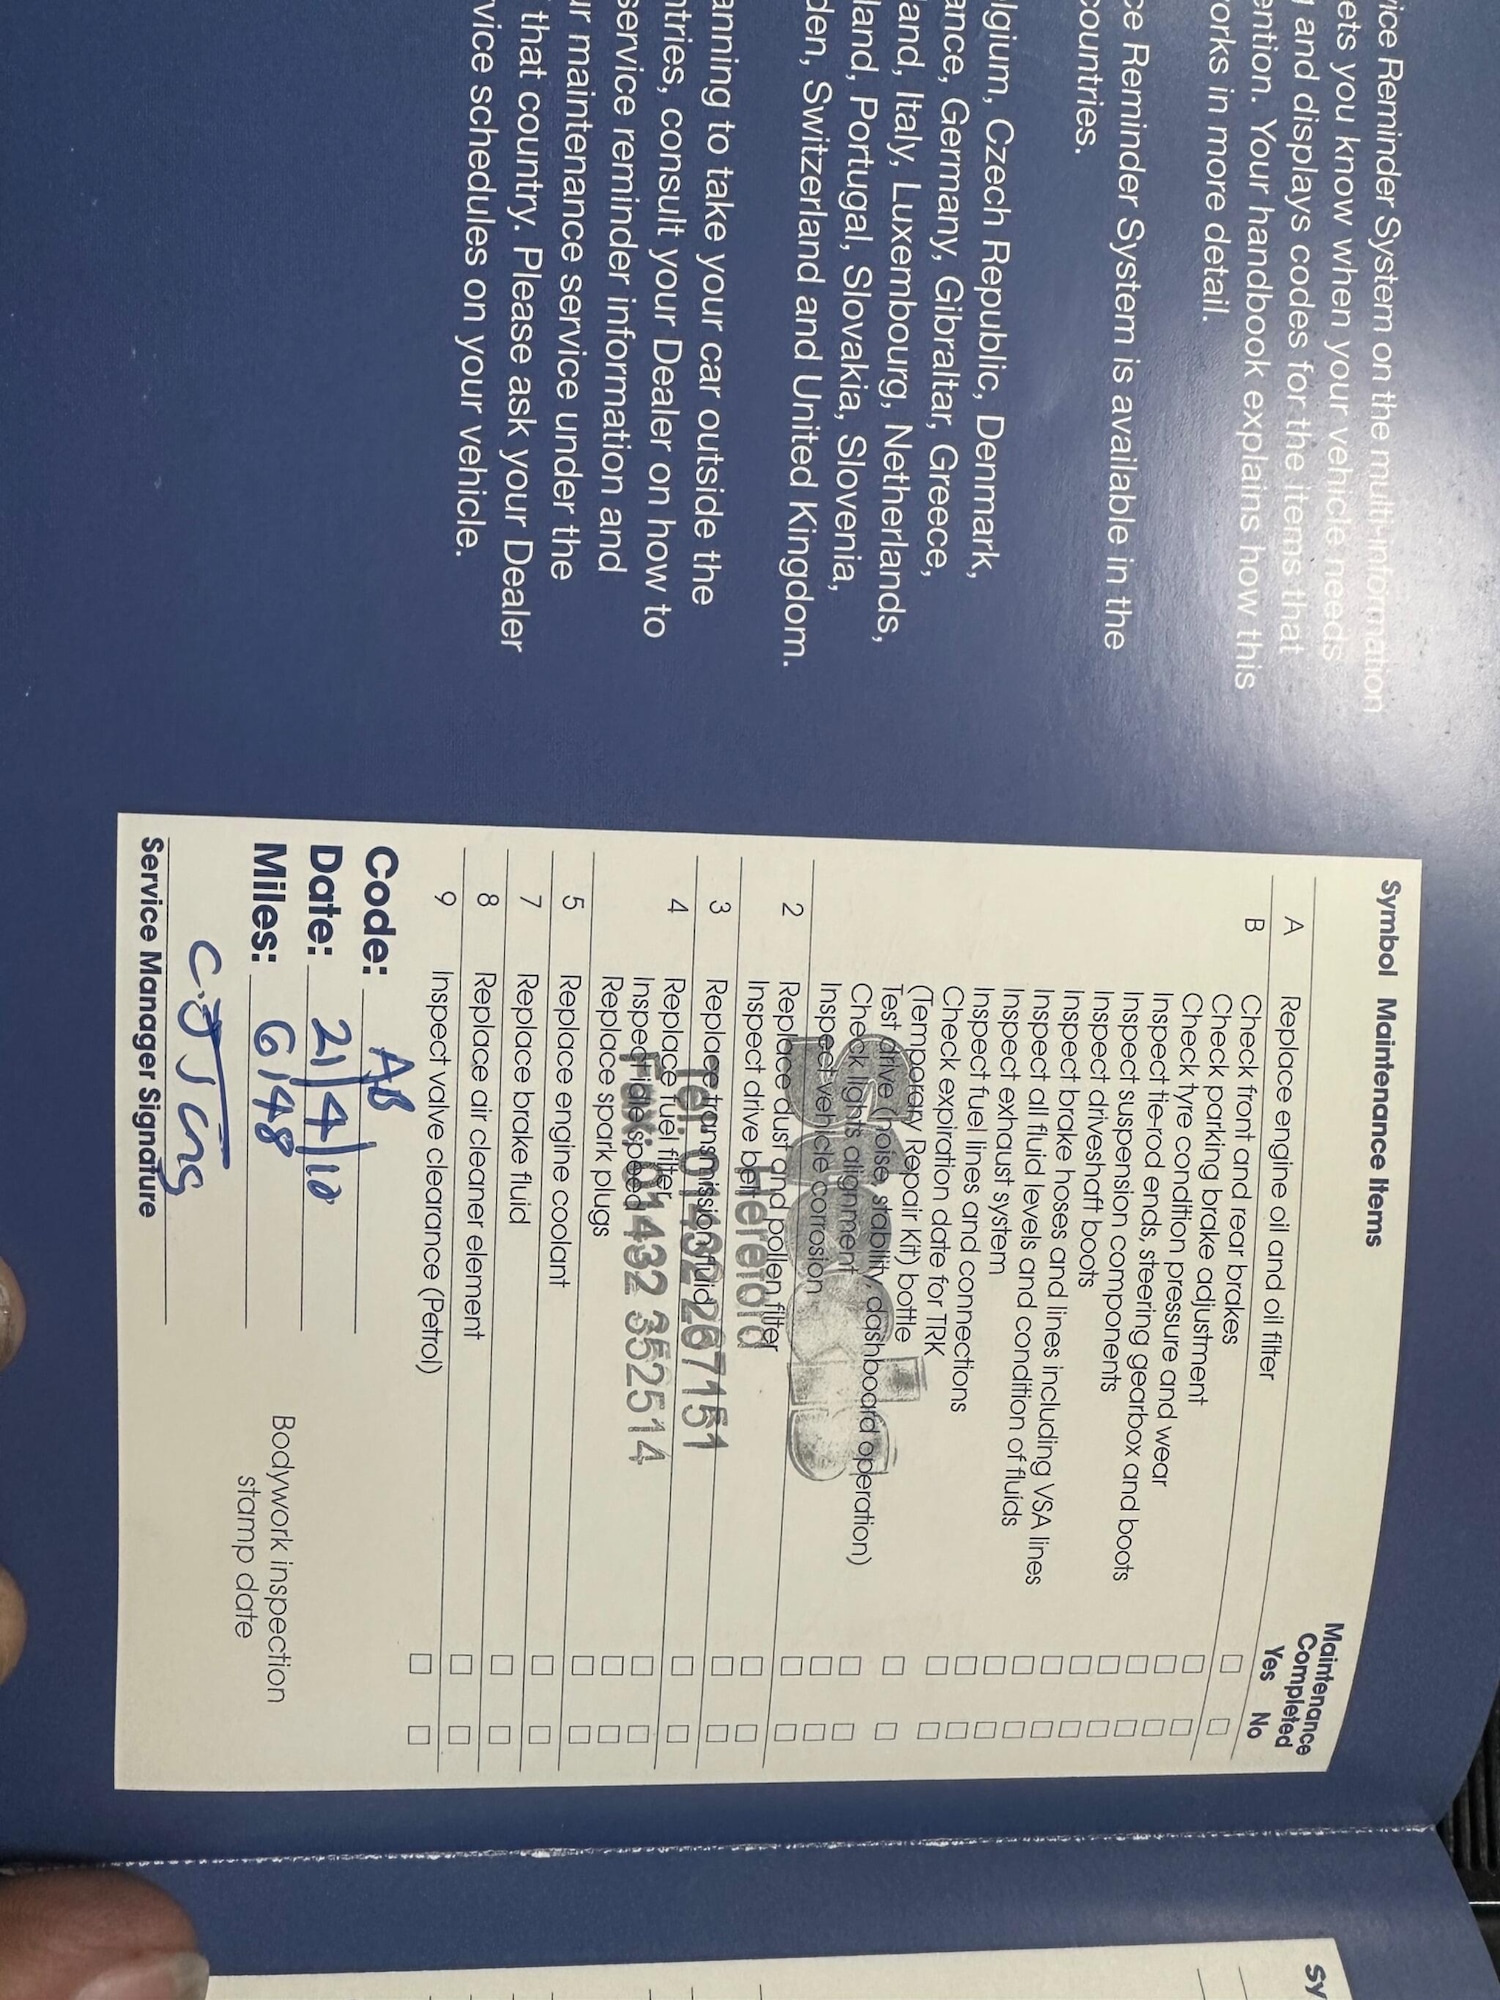 ice Reminder System on the multi-information
ets you know when your vehicle needs
and displays codes for the items that
ention. Your handbook explains how this
orks in more detail.
ce Reminder System is available in the
countries.
lgium, Czech Republic, Denmark,
ance, Germany, Gibraltar, Greece,
and, Italy, Luxembourg, Netherlands,
land, Portugal, Slovakia, Slovenia,
den, Switzerland and United Kingdom.
anning to take your car outside the
ntries, consult your Dealer on how to
service reminder information and
ur maintenance service under the
that country. Please ask your Dealer
vice schedules on your vehicle.
Symbol Maintenance Items
Maintenance
Completed
Yes No
A Replace engine oil and oil filter
B Check front and rear brakes
Check parking brake adjustment
Check tyre condition pressure and wear
Inspect tie-rod ends, steering gearbox and boots
Inspect suspension components
Inspect driveshaft boots
Inspect brake hoses and lines including VSA lines
Inspect all fluid levels and condition of fluids
Inspect exhaust system
Inspect fuel lines and connections
Check expiration date for TRK
(Temporary Repair Kit) bottle
Test drive (noise, stability, dashboard operation)
Check lights alignment
Inspect vehicle corrosion
2 Replace dust and pollen filter
Inspect drive belt
3 Replace transmission fluid
4 Replace fuel filter
Inspect idle speed
Replace spark plugs
5 Replace engine coolant
7 Replace brake fluid
8 Replace air cleaner element
9 Inspect valve clearance (Petrol)
Hereford
Tel: 01432 267151
Fax: 01432 352514
Code: AB
Date: 21/4/10
Miles: 6148
Service Manager Signature
Bodywork inspection
stamp date
Sy